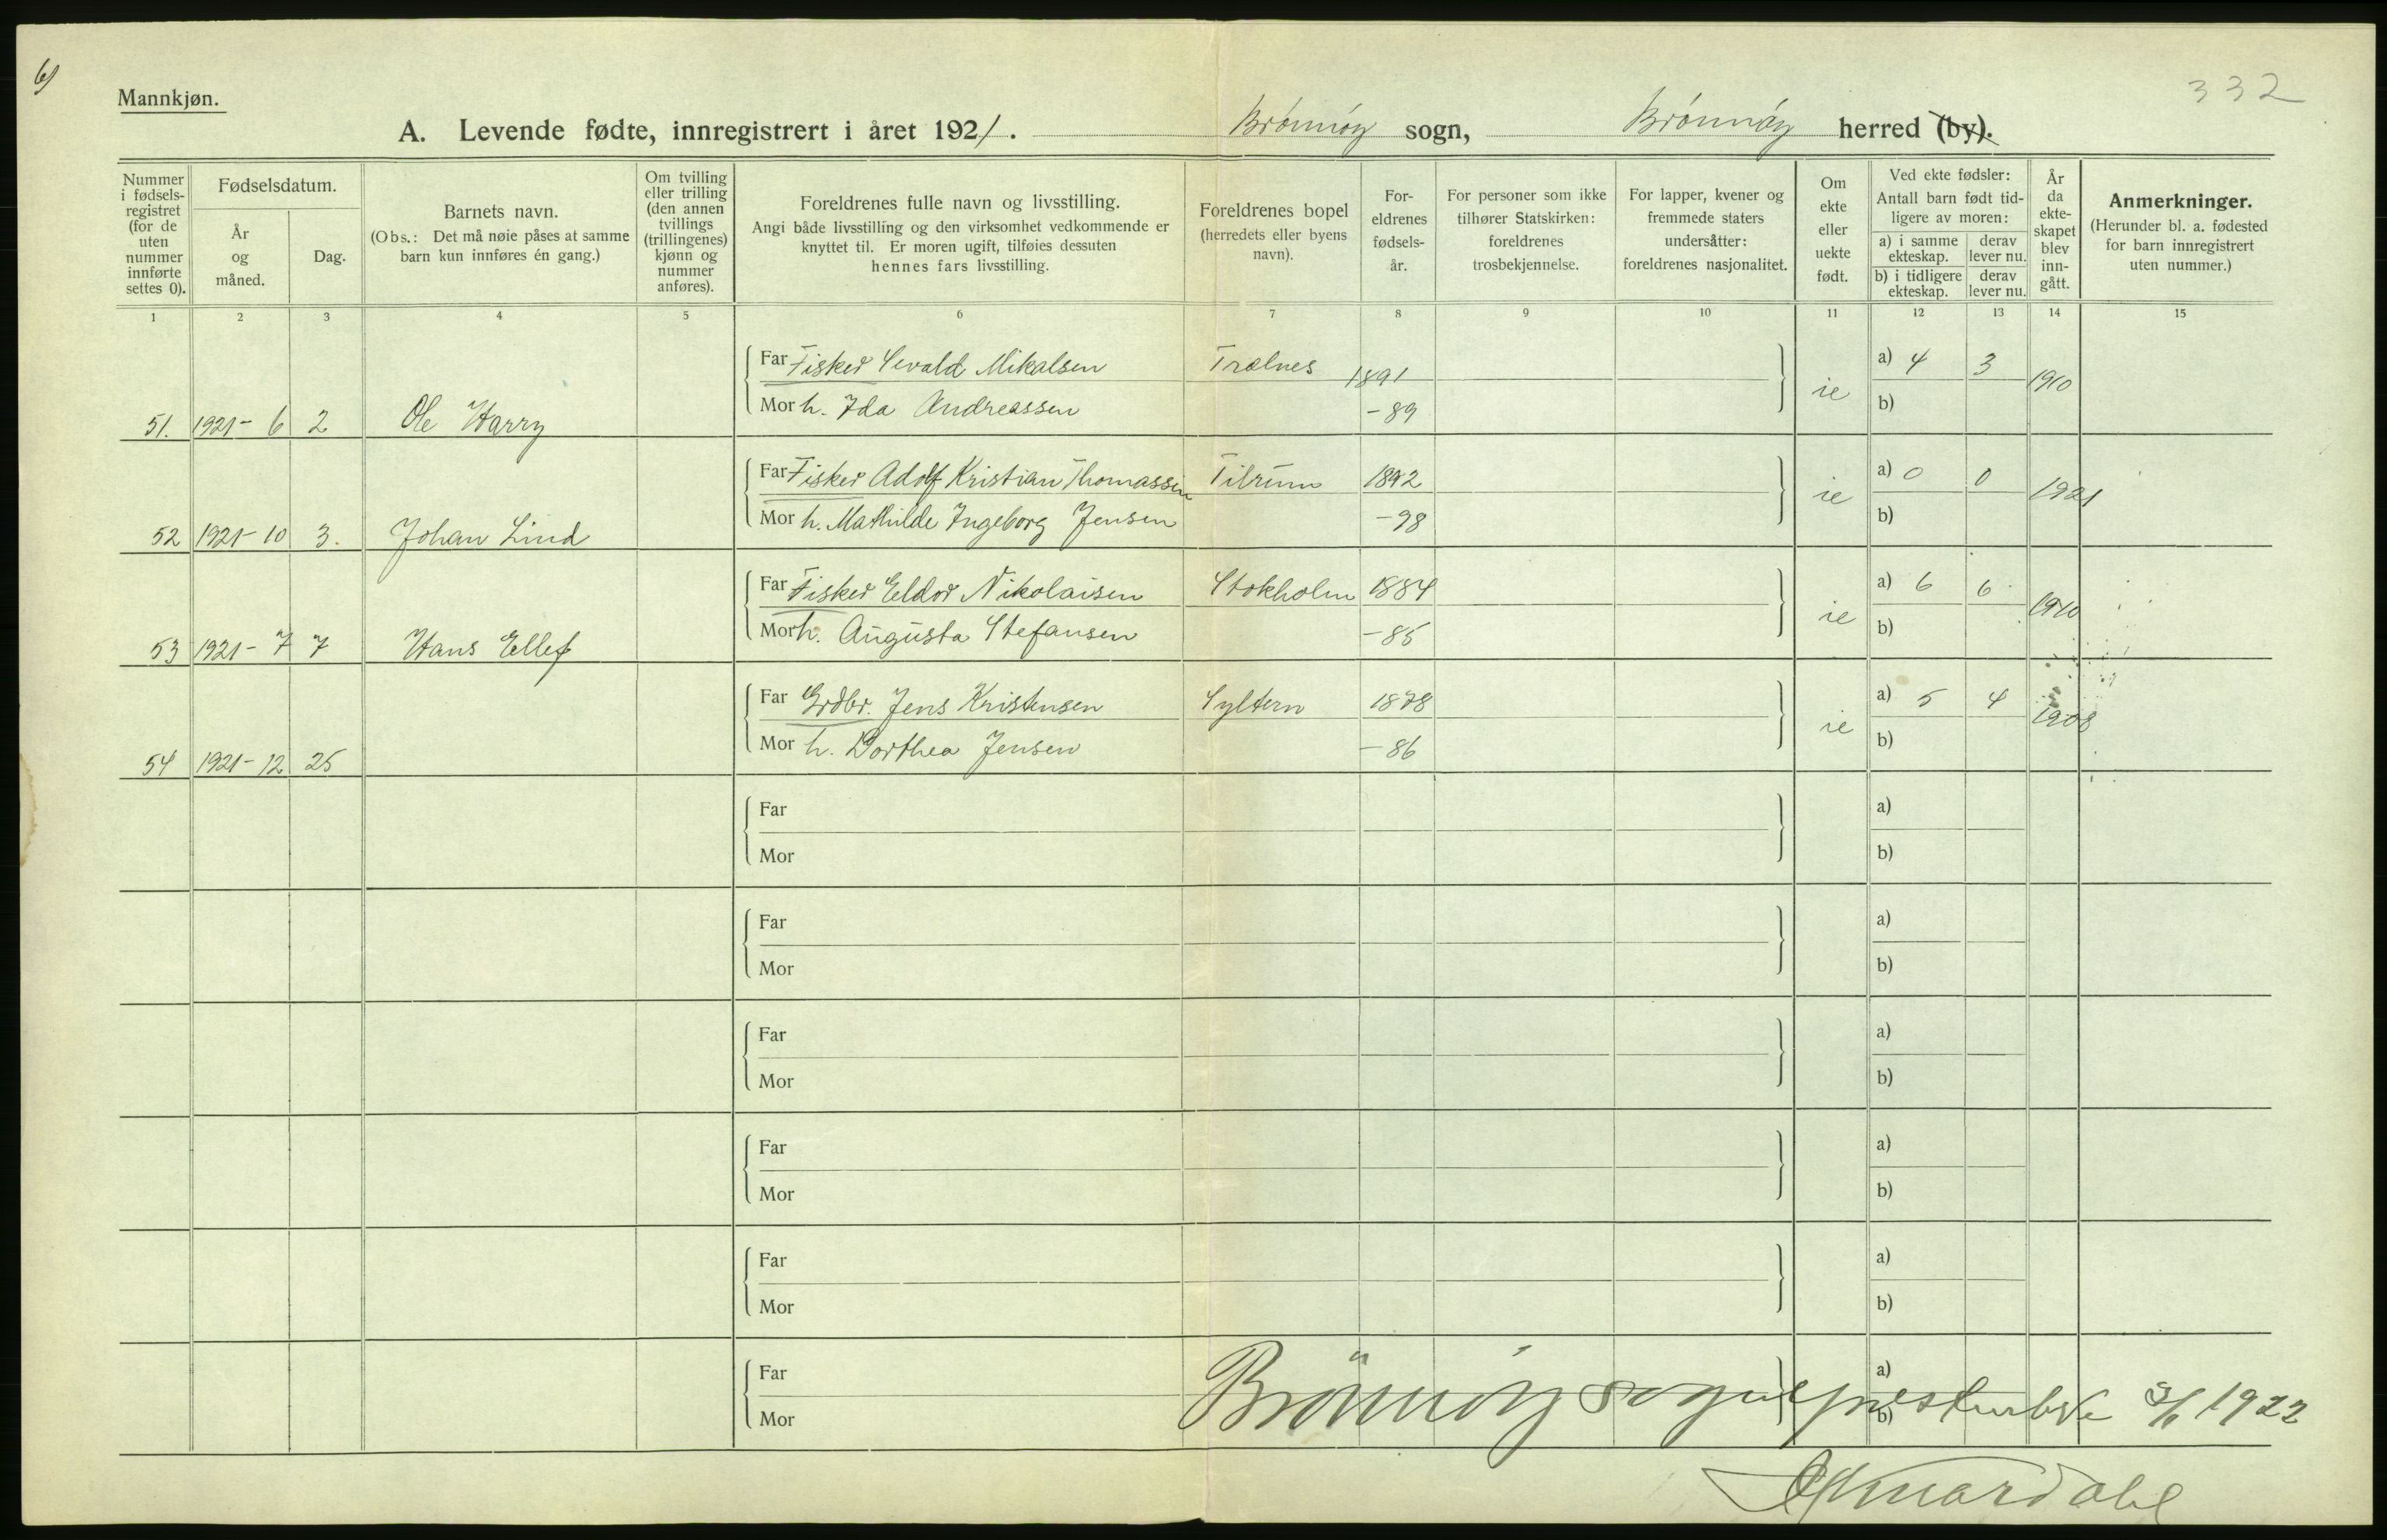 6)
332
Mannkjøn.
A. Levende fødte, innregistrert i året 1921. Brönnöy sogn, Brönnöy herred (by).
Nummer i fødsels-registret (for de uten nummer innførte settes 0).
Fødselsdatum.
År og måned.
Dag.
Barnets navn.
(Obs.: Det må nøie påses at samme barn kun innføres én gang.)
Om tvilling eller trilling (den annen tvillings (trillingenes) kjønn og nummer anføres).
Foreldrenes fulle navn og livsstilling.
Angi både livsstilling og den virksomhet vedkommende er knyttet til. Er moren ugift, tilføies dessuten hennes fars livsstilling.
Foreldrenes bopel (herredets eller byens navn).
For-eldrenes fødsels-år.
For personer som ikke tilhører Statskirken: foreldrenes trosbekjennelse.
For lapper, kvener og fremmede staters undersåtter: foreldrenes nasjonalitet.
Om ekte eller uekte født.
Ved ekte fødsler:
Antall barn født tid-ligere av moren:
a) i samme ekteskap. derav lever nu.
b) i tidligere ekteskap. derav lever nu.
År da ekte-skapet blev inn-gått.
Anmerkninger.
(Herunder bl. a. fødested for barn innregistrert uten nummer.)
1 2 3 4 5 6 7 8 9 10 11 12 13 14 15
Far Fisker Sevald Mikalsen Trælnes 1891 a) 4 3
51. 1921- 6 2 Ole Harry Mor h. Ida Andreassen -89 ie b) 1910
Far Fisker Adolf Kristian Thomassen Tilrum 1892 a) 0 0
52 1921- 10 3. Johan Lind Mor h. Mathilde Ingeborg Jensen -98 ie b) 1921
Far Fisker Eldor Nikolaisen Stokholm 1884 a) 6 6
53 1921- 7 7 Hans Ellef Mor h. Augusta Stefansen -85 ie b) 1910
Far Grdbr. Jens Kristensen Syltern 1878 a) 5 4
54 1921- 12 25 Mor h. Dorthea Jensen -86 ie b) 1908
Far a)
Mor b)
Far a)
Mor b)
Far a)
Mor b)
Far a)
Mor b)
Far a)
Mor b)
Far a)
Mor b)
Brönnöy sogneprestembede 3/1 1922